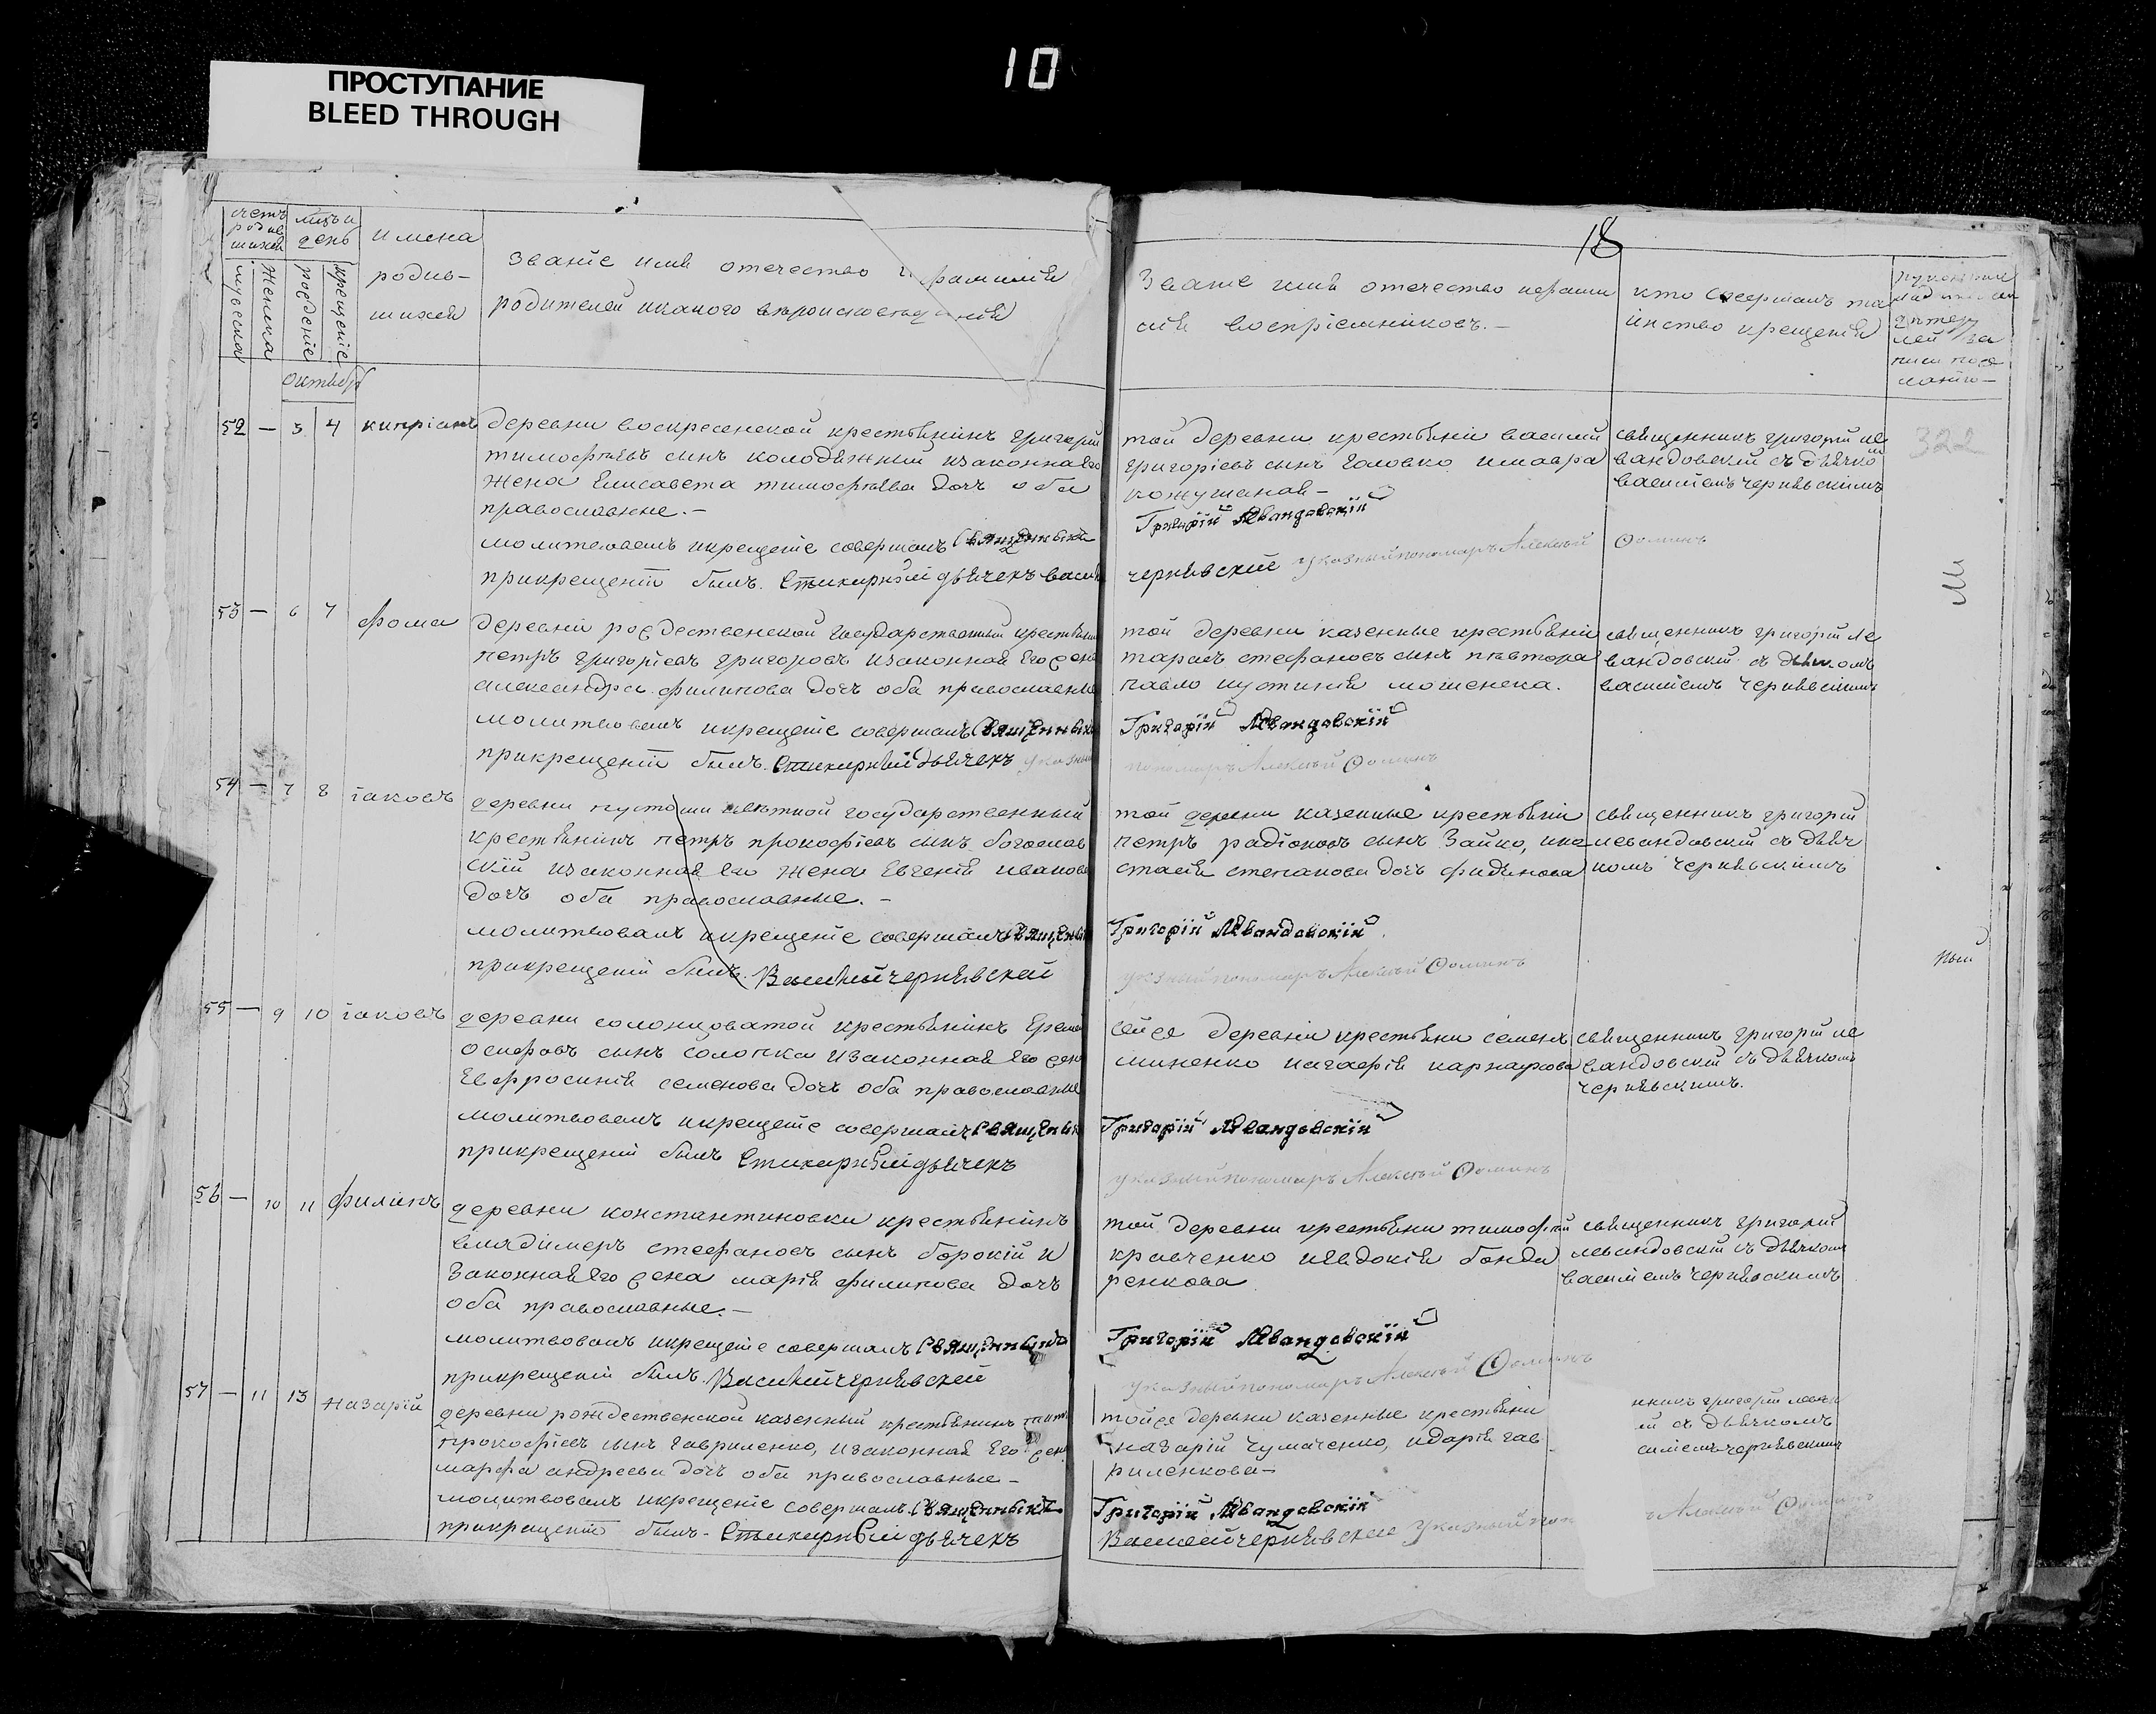 10
ПРОСТУПАНИЕ
BLEED THROUGH
18
счетъ родив шихся
мсцъ и день
имена родив- шихся
Званіе имя отечество и фамилія
родителей и какого вѣроисповеданія
Званіе имя отечество и фами
лія воспріемниковъ.-
кто совершалъ та
инство крещенія
мужеска
женска
рождение
крещение
октябр
52 — 3 4 кипріанъ
деревни воскресенской крестьянинъ григорій
тимофѣевъ сынъ колодяжный изаконная его
жена Елисавета тимофѣева дочь оба
православные.-
молитвовалъ икрещеніе совершалъ Священникъ
прикрещеніи былъ. Стихирный дьячекъ васи
той деревни крестьяни василий
григоріевъ сынъ головко имавра
кожушаная-
Григорій Левандовскій
чернявский указный пономаръ Алексѣй Фоминъ
священникъ григорій ле
вандовский съ дьячко
василіемъ чернявскимъ
322
53 — 6 7 фома
деревни рождественской государственный крестьянин
петръ григоріевъ григоровъ изаконная его жена
александра филипова дочь оба православные
молитвовалъ икрещеніе совершалъ Священникъ
прикрещеніи былъ. Стихирный дьячекъ указный
той деревни казенные крестьяни
тарасъ стефановъ сынъ пѣвтора
павло иустинія мошенска.
Григорій Левандовскій
пономаръ Алексѣй Фоминъ
священникъ григорій ле
вандовский съ дьячкомъ
василіемъ чернявскимъ
54 — 7 8 іаковъ
деревни пустоши государственный
крестьянинъ петръ прокофіевъ сынъ богослав
скій изаконная его жена Евгенія иванова
дочь оба православные.-
молитвовалъ икрещеніе совершалъ Священникъ
прикрещеніи былъ. Василий чернявский
той деревни казенные крестьяни
петръ радіоновъ сынъ Зайко, ина
стасія степанова дочь
Григорій Левандовскій
указный пономаръ Алексѣй Фоминъ
священникъ григорій
левандовский съ дьяч
комъ чернявскимъ
55 — 9 10 іаковъ
деревни солонцоватой крестьянинъ Ереме
осифовъ сынъ солопка изаконная его жена
Евфросинія семенова дочь оба православные
молитвовалъ икрещеніе совершалъ Священникъ
прикрещеніи былъ Стихирный дьячекъ
сейже деревни крестьяни семенъ
миненко иагафія карнаухова
Григорій Левандовскій
указный пономаръ Алексѣй Фоминъ
священникъ григорій ле
вандовский съ дьячкомъ
чернявскимъ.
56 — 10 11 филипъ
деревни константиновки крестьянинъ
владимеръ стефановъ сынъ борокій и
законная его жена марія филипова дочь
оба православные.-
молитвовалъ икрещеніе совершалъ Священникъ
прикрещеніи былъ. Василий чернявский
той деревни крестьяни тимофѣй
кравченко иевдокія бонда
ренкова
Григорій Левандовскій
указный пономаръ Алексѣй Фоминъ
священникъ григорій
левандовскій съ дьячкомъ
василіемъ чернявскимъ
57 — 11 13 назарій
деревни рождественской казенный крестьянинъ
прокофіевъ сынъ гавриленко, изаконная Его жена
марфа андреева дочь оба православные-
молитвовалъ икрещеніе совершалъ Священникъ
прикрещеніи былъ- Стихирный дьячекъ
тойже деревни казенные крестьяни
назарій чумаченко, идарія гав
риленкова-
Григорій Левандовскій
Василий чернявские указный пон
ъ Алексѣй Фоминъ
нникъ григорій леван
ій съ дьячкомъ
силіемъ чернявскимъ